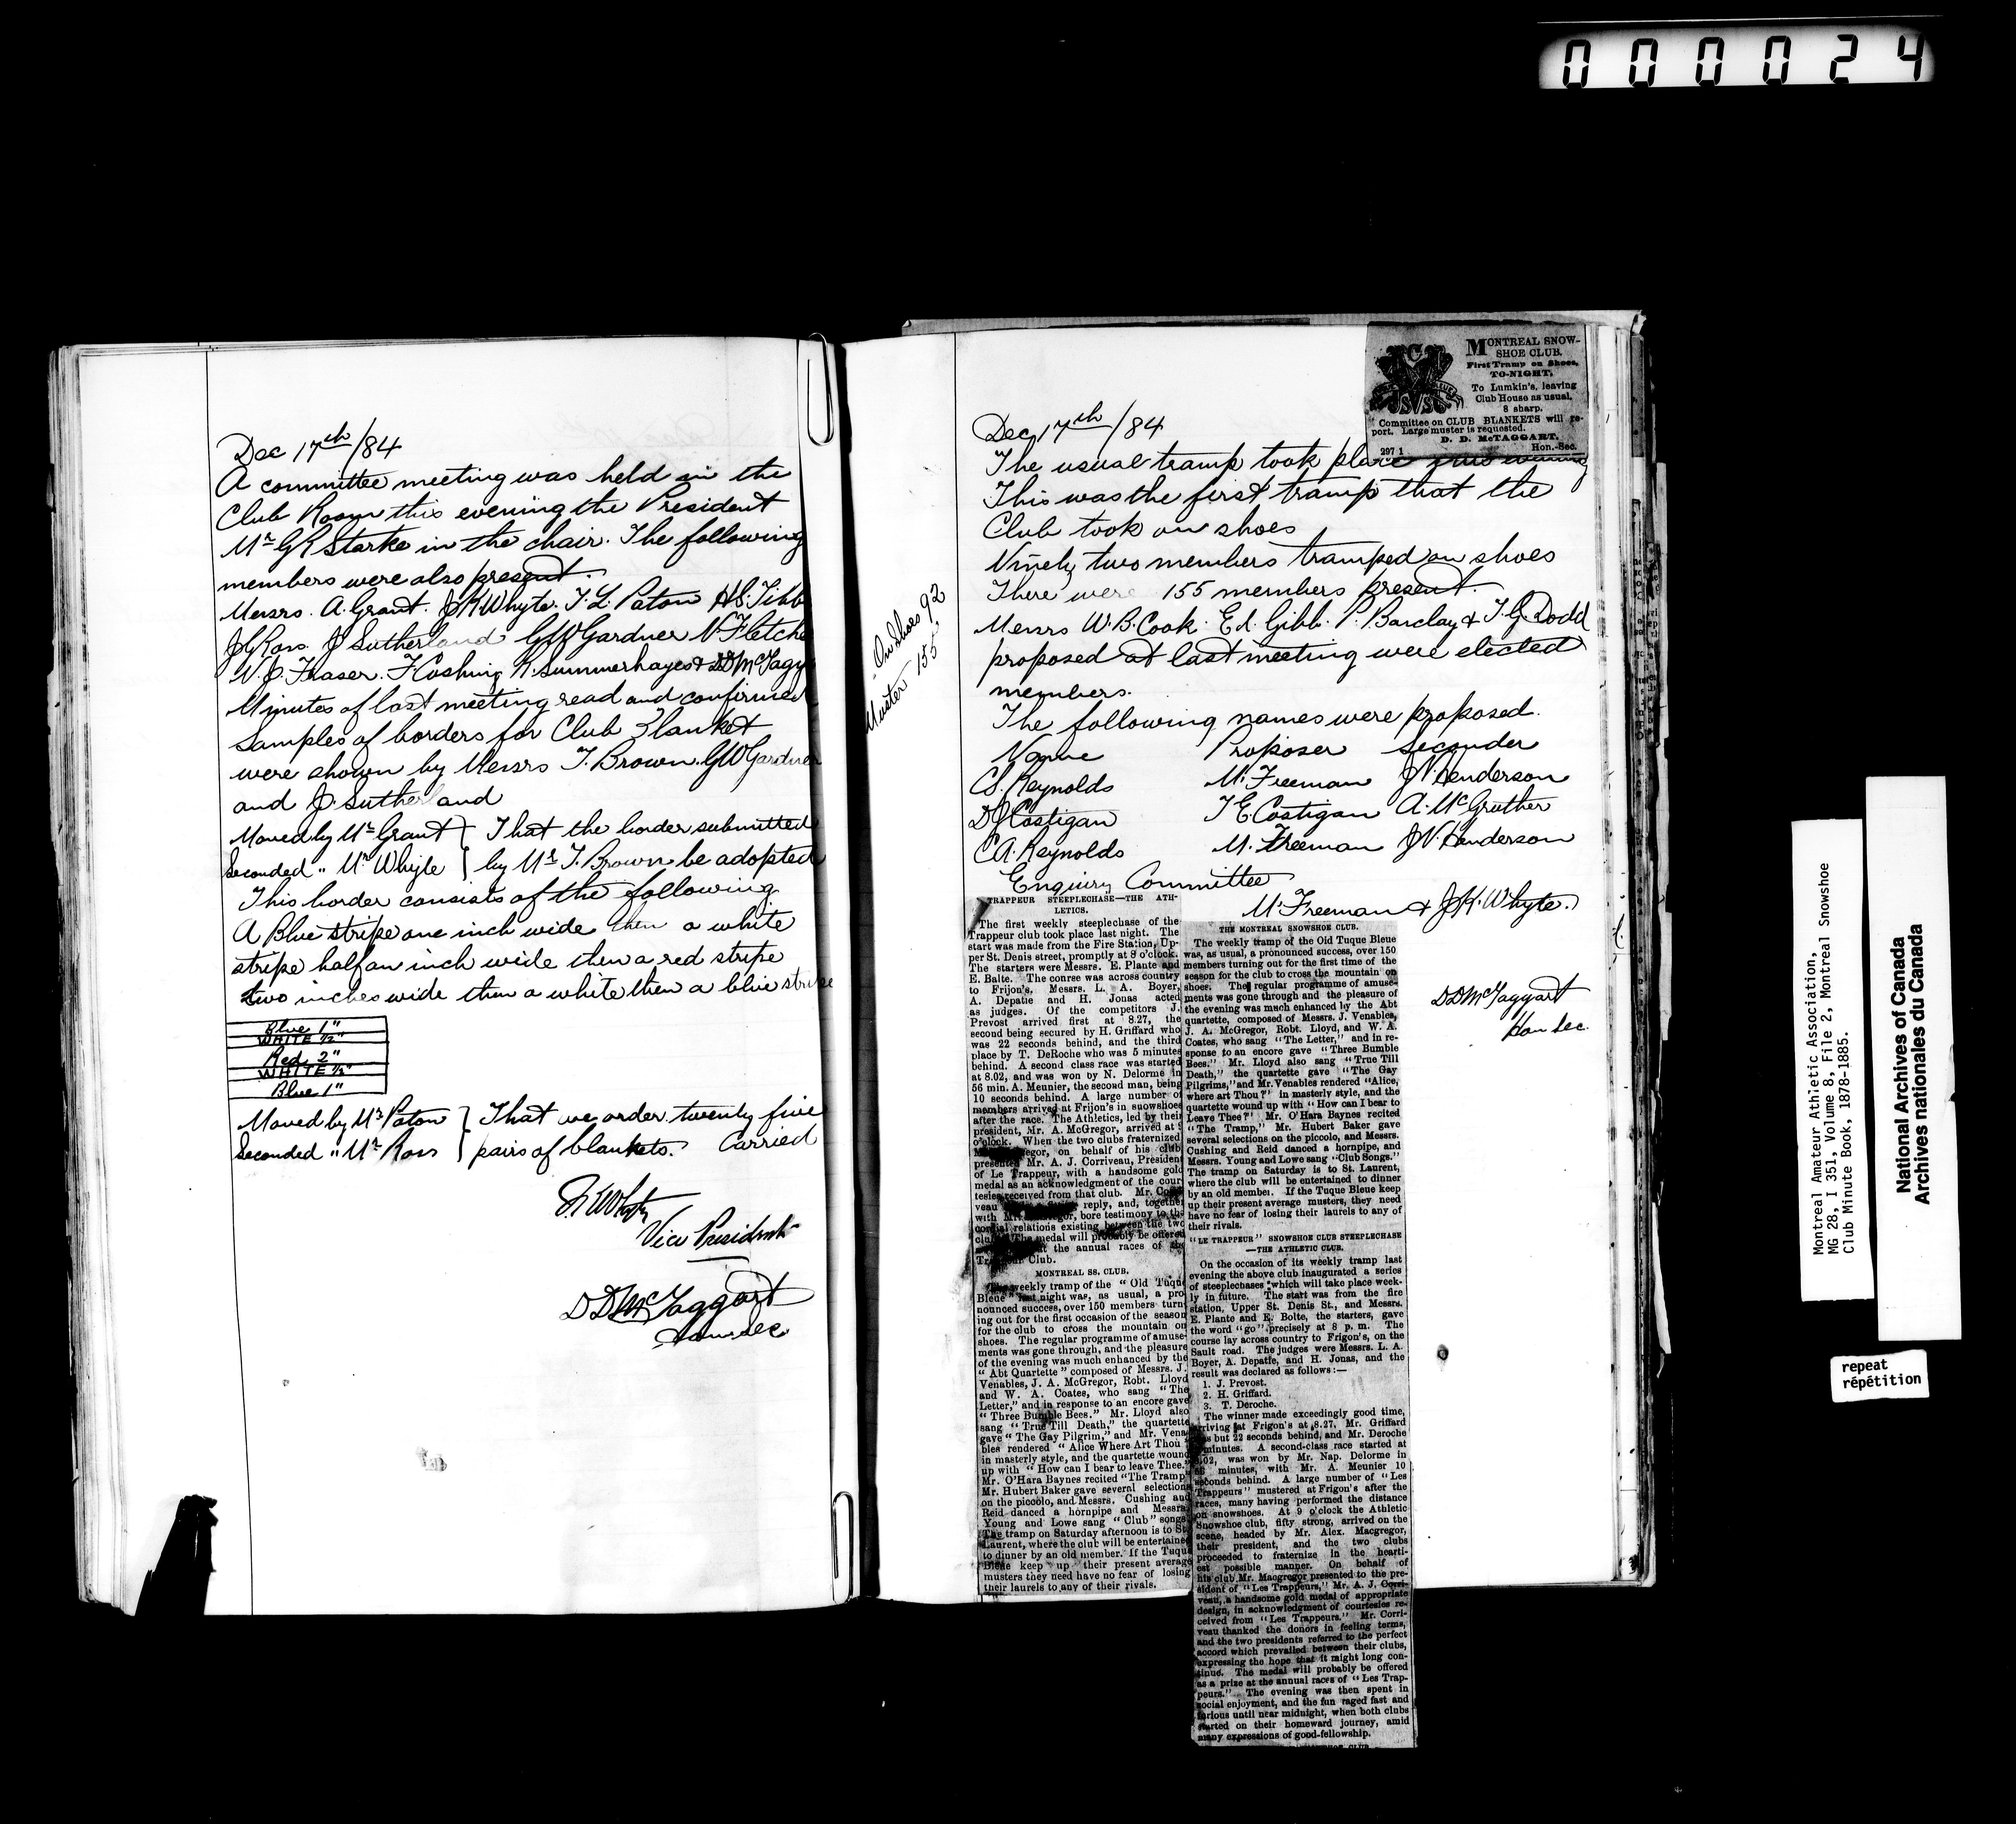 000024
Dec 17th/84
A committee meeting was held in the
Club Room this evening the President
Mr G R Starke in the chair. The following
members were also present.
Messrs. A. Grant. J K Whyte. T. L. Paton H S. Tibb
J G Ross. J Sutherland G W Gardner N. Fletche
N. J. Fraser. F. Cushing R. Summerhayes & D D McTagg
Minutes of last meeting read and confirmed
Samples of borders for Club Blanket
were shown by Messrs T. Brown. G W Gardner
and J. Sutherland
Moved by Mr Grant } That the border submitted
Seconded " Mr Whyte } by Mr T. Brown be adopted
This border consists of the following
A Blue stripe one inch wide then a white
stripe half an inch wide then a red stripe
two inches wide then a white then a blue stripe
Blue 1"
WHITE 1/2"
Red 2"
WHITE 1/2"
Blue 1"
Moved by Mr Paton } That we order twenty five
Seconded " Mr Ross } pairs of blankets. Carried
J. K Whyte
Vice President
D D McTaggart
Hon Sec
On shoes 92
Muster 155
MONTREAL SNOW-
SHOE CLUB.
First Tramp on Shoes,
TO-NIGHT,
To Lumkin's, leaving
Club House as usual,
8 sharp.
Committee on CLUB BLANKETS will re-
port. Large muster is requested.
D. D. McTAGGART.
297 1 Hon.-Sec.
Dec 17th/84
The usual tramp took place this evening
This was the first tramp that the
Club took on shoes
Ninety two members tramped on shoes
There were 155 members present.
Messrs W. B. Cook. Ed. Gibb. P. Barclay & T. G. Dodd
proposed at last meeting were elected
members.
The following names were proposed.
Name Proposer Seconder
C S. Reynolds M. Freeman J V. Henderson
D J Costigan T E Costigan A. McGruther
C A. Reynolds M. Freeman J V. Henderson
Enquiry Committee
M. Freeman & J. K. Whyte.
D D McTaggart
Hon Sec.
TRAPPEUR STEEPLECHASE—THE ATH-
LETICS.
The first weekly steeplechase of the
Trappeur club took place last night. The
start was made from the Fire Station, Up-
per St. Denis street, promptly at 8 o'clock.
The starters were Messrs. E. Plante and
E. Balte. The course was across country
to Frijon's. Messrs. L. A. Boyer,
A. Depatie and H. Jonas acted
as judges. Of the competitors J.
Prevost arrived first at 8.27, the
second being secured by H. Griffard who
was 22 seconds behind, and the third
place by T. DeRoche who was 5 minutes
behind. A second class race was started
at 8.02, and was won by N. Delorme in
56 min. A. Meunier, the second man, being
10 seconds behind. A large number of
members arrived at Frijon's in snowshoes
after the race. The Athletics, led by their
president, Mr. A. McGregor, arrived at 9
o'clock. When the two clubs fraternized
egor, on behalf of his club,
presented Mr. A. J. Corriveau, President
of Le Trappeur, with a handsome gold
medal as an acknowledgment of the cour-
tesies received from that club. Mr. Corri-
veau reply, and, together
with Mr. gor, bore testimony to the
cordial relations existing between the two
clubs. The medal will probably be offered
at the annual races of the
Trappeur Club.
MONTREAL SS. CLUB.
The weekly tramp of the "Old Tuque
Bleue" last night was, as usual, a pro-
nounced success, over 150 members turn-
ing out for the first occasion of the season
for the club to cross the mountain on
shoes. The regular programme of amuse-
ments was gone through, and the pleasure
of the evening was much enhanced by the
"Abt Quartette" composed of Messrs. J.
Venables, J. A. McGregor, Robt. Lloyd
and W. A. Coates, who sang "The
Letter," and in response to an encore gave
"Three Bumble Bees." Mr. Lloyd also
sang "True Till Death," the quartette
gave "The Gay Pilgrim," and Mr. Vena-
bles rendered "Alice Where Art Thou"
in masterly style, and the quartette wound
up with "How can I bear to leave Thee."
Mr. O'Hara Baynes recited "The Tramp"
Mr. Hubert Baker gave several selections
on the piccolo, and Messrs. Cushing and
Reid danced a hornpipe and Messrs.
Young and Lowe sang "Club" songs.
The tramp on Saturday afternoon is to St.
Laurent, where the club will be entertained
to dinner by an old member. If the Tuque
Bleue keep up their present average
musters they need have no fear of losing
their laurels to any of their rivals.
THE MONTREAL SNOWSHOE CLUB.
The weekly tramp of the Old Tuque Bleue
was, as usual, a pronounced success, over 150
members turning out for the first time of the
season for the club to cross the mountain on
shoes. The regular programme of amuse-
ments was gone through and the pleasure of
the evening was much enhanced by the Abt
quartette, composed of Messrs. J. Venables,
J. A. McGregor, Robt. Lloyd, and W. A.
Coates, who sang "The Letter," and in re-
sponse to an encore gave "Three Bumble
Bees." Mr. Lloyd also sang "True Till
Death," the quartette gave "The Gay
Pilgrims," and Mr. Venables rendered "Alice,
where art Thou?" in masterly style, and the
quartette wound up with "How can I bear to
Leave Thee?" Mr. O'Hara Baynes recited
"The Tramp," Mr. Hubert Baker gave
several selections on the piccolo, and Messrs.
Cushing and Reid danced a hornpipe, and
Messrs. Young and Lowe sang "Club Songs."
The tramp on Saturday is to St. Laurent,
where the club will be entertained to dinner
by an old member. If the Tuque Bleue keep
up their present average musters, they need
have no fear of losing their laurels to any of
their rivals.
"LE TRAPPEUR" SNOWSHOE CLUB STEEPLECHASE
—THE ATHLETIC CLUB.
On the occasion of its weekly tramp last
evening the above club inaugurated a series
of steeplechases which will take place week-
ly in future. The start was from the fire
station, Upper St. Denis St., and Messrs.
E. Plante and E. Bolte, the starters, gave
the word "go" precisely at 8 p. m. The
course lay across country to Frigon's, on the
Sault road. The judges were Messrs. L. A.
Boyer, A. Depatie, and H. Jonas, and the
result was declared as follows:—
1. J. Prevost.
2. H. Griffard.
3. T. Deroche.
The winner made exceedingly good time,
arriving at Frigon's at 8.27, Mr. Griffard
was but 22 seconds behind, and Mr. Deroche
minutes. A second-class race started at
8.02, was won by Mr. Nap. Delorme in
56 minutes, with Mr. A. Meunier 10
seconds behind. A large number of "Les
Trappeurs" mustered at Frigon's after the
races, many having performed the distance
on snowshoes. At 9 o'clock the Athletic
Snowshoe club, fifty strong, arrived on the
scene, headed by Mr. Alex. Macgregor,
their president, and the two clubs
proceeded to fraternize in the hearti-
est possible manner. On behalf of
his club Mr. Macgregor presented to the pre-
sident of "Les Trappeurs," Mr. A. J. Corri-
veau, a handsome gold medal of appropriate
design, in acknowledgment of courtesies re-
ceived from "Les Trappeurs." Mr. Corri-
veau thanked the donors in feeling terms,
and the two presidents referred to the perfect
accord which prevailed between their clubs,
expressing the hope that it might long con-
tinue. The medal will probably be offered
as a prize at the annual races of "Les Trap-
peurs." The evening was then spent in
social enjoyment, and the fun raged fast and
furious until near midnight, when both clubs
started on their homeward journey, amid
many expressions of good-fellowship.
Montreal Amateur Athletic Association,
MG 28, I 351, Volume 8, File 2, Montreal Snowshoe
Club Minute Book, 1878-1885.
National Archives of Canada
Archives nationales du Canada
repeat
répétition